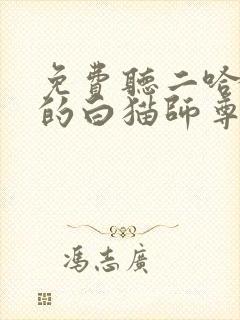 免費聽二哈
的白猫師尊
馮志廣